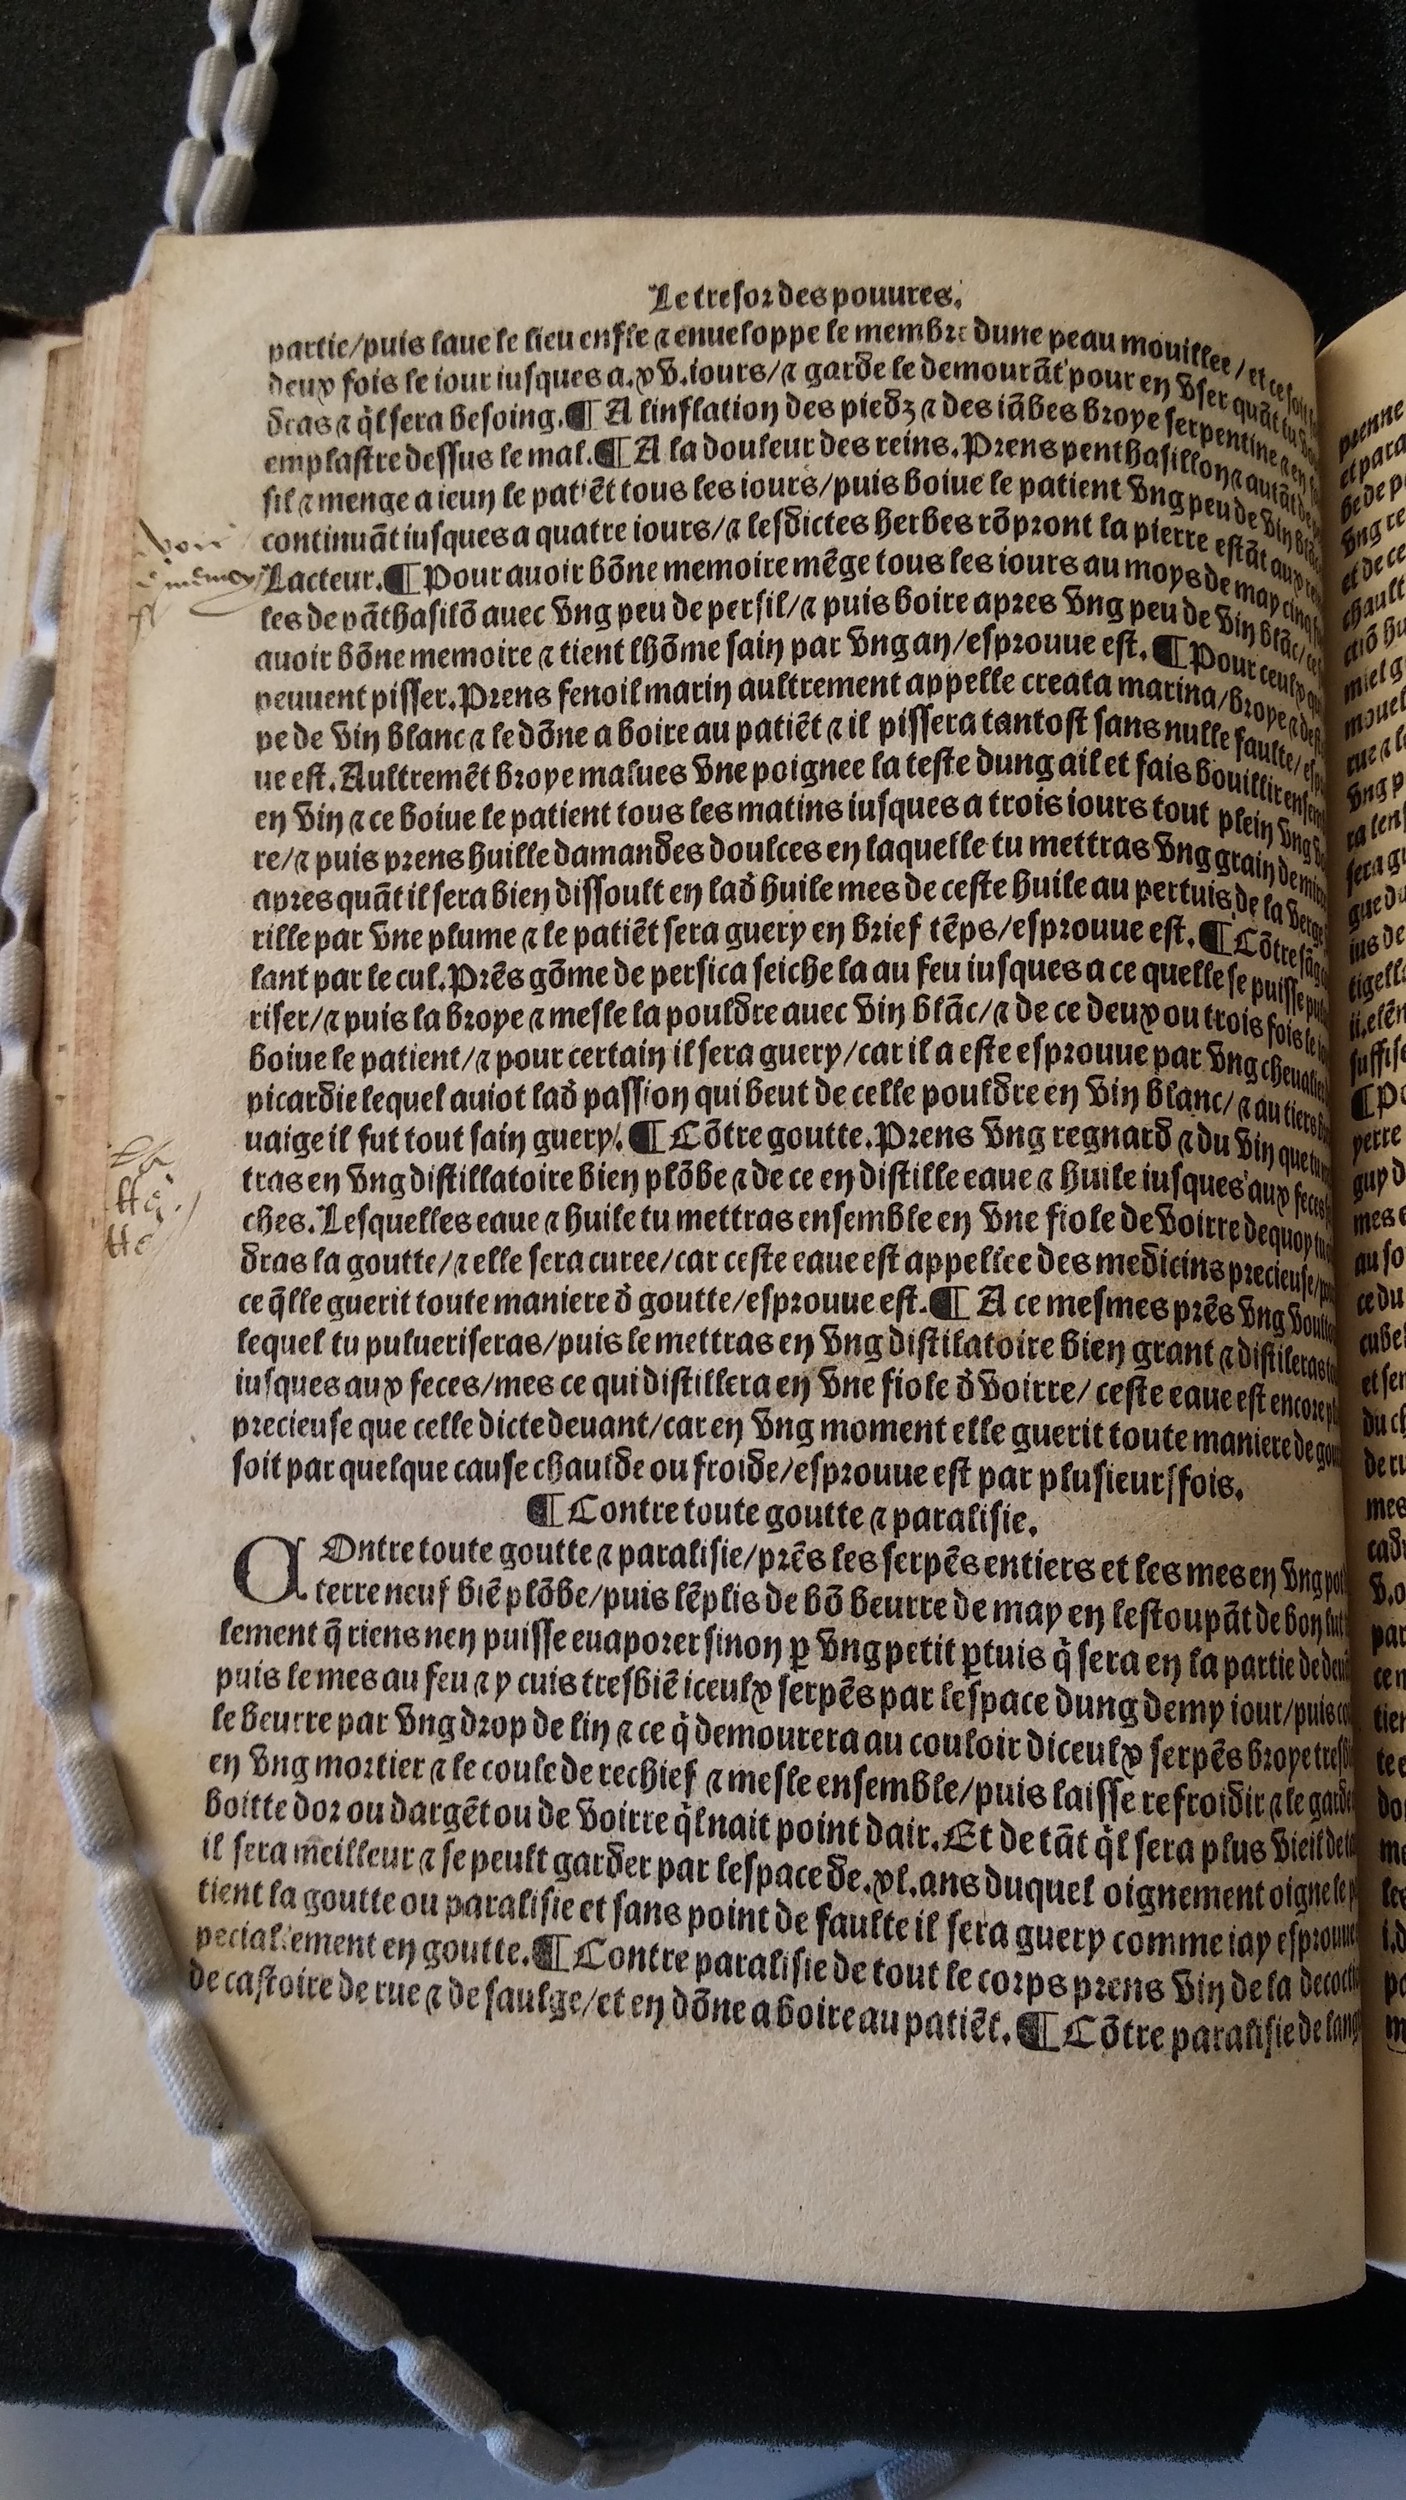 Le tresor des pouures.
partie/puis laue le lieu enfle ⁊ enueloppe le membre dune peau mouillee/et ce soit
deux fois le iour iusques a.xv.iours/⁊ garde le demourãt pour en vser quãt tu
dras ⁊ q̃l sera besoing.¶ A linflation des piedz ⁊ des iãbes broye serpentine ⁊ en
emplastre dessus le mal.¶ A la douleur des reins.Prens penthasillon ⁊ autãt de
sil ⁊ menge a ieun le patiẽt tous les iours/puis boiue le patient vng peu de vin blãc
continuãt iusques a quatre iours/⁊ lesdictes herbes rõpront la pierre estãt aux
Lacteur.¶ Pour auoir bõne memoire mẽge tous les iours au moys de may cinq
les de pãthasilõ auec vng peu de persil/⁊ puis boire apres vng peu de vin blãc/
auoir bõne memoire ⁊ tient lhõme sain par vng an/esprouue est.¶ Pour ceulx qui
peuuent pisser.Prens fenoil marin aultrement appelle creata marina/broye ⁊
pe de vin blanc ⁊ le dõne a boire au patiẽt ⁊ il pissera tantost sans nulle faulte/
ue est.Aultremẽt broye malues vne poignee la teste dung ail et fais bouillir
en vin ⁊ ce boiue le patient tous les matins iusques a trois iours tout plein vng
re/⁊ puis prens huille damandes doulces en laquelle tu mettras vng grain de
apres quãt il sera bien dissoult en lad̃ huile mes de ceste huile au pertuis de la verge
rille par vne plume ⁊ le patiẽt sera guery en brief tẽps/esprouue est.¶ Cõtre
lant par le cul.Prẽs gõme de persica seiche la au feu iusques a ce quelle se puisse
riser/⁊ puis la broye ⁊ mesle la pouldre auec vin blãc/⁊ de ce deux ou trois fois le
boiue le patient/⁊ pour certain il sera guery/car il a este esprouue par vng
picardie lequel auiot lad̃ passion qui beut de celle pouldre en vin blanc/⁊ au tiers
uaige il fut tout sain guery/.¶ Cõtre goutte.Prens vng regnard ⁊ du vin que
tras en vng distillatoire bien plõbe ⁊ de ce en distille eaue ⁊ huile iusques aux feces
ches.Lesquelles eaue ⁊ huile tu mettras ensemble en vne fiole de voirre dequoy
dras la goutte/⁊ elle sera curee/car ceste eaue est appellee des medicins precieuse/
ce q̃lle guerit toute maniere d̃ goutte/esprouue est.¶ A ce mesmes prẽs vng
lequel tu pulueriseras/puis le mettras en vng distilatoire bien grant ⁊ distileras
iusques aux feces/mes ce qui distillera en vne fiole d̃ voirre/ ceste eaue est encore
precieuse que celle dicte deuant/car en vng moment elle guerit toute maniere de
soit par quelque cause chaulde ou froide/esprouue est par plusieurs fois.
¶ Contre toute goutte ⁊ paralisie.
COntre toute goutte ⁊ paralisie/prẽs les serpẽs entiers et les mes en vng pot
terre neuf biẽ plõbe/puis lẽplis de bõ beurre de may en lestoupãt de bon lut
lement q̃ riens nen puisse euaporer sinon ꝑ vng petit ꝑtuis q̃ sera en la partie de
puis le mes au feu ⁊ y cuis tresbiẽ iceulx serpẽs par lespace dung demy iour/puis
le beurre par vng drop de lin ⁊ ce q̃ demourera au couloir diceulx serpẽs broye
en vng mortier ⁊ le coule de rechief ⁊ mesle ensemble/puis laisse refroidir ⁊ le garde
boitte dor ou dargẽt ou de voirre q̃l nait point dair.Et de tãt q̃l sera plus vieil de
il sera meilleur ⁊ se peult garder par lespace de.xl.ans duquel oignement oigne le
tient la goutte ou paralisie et sans point de faulte il sera guery comme iay esprouue
peciallement en goutte.¶ Contre paralisie de tout le corps prens vin de la
de castoire de rue ⁊ de saulge/et en dõne a boire au patiẽt.¶ Cõtre paralisie de